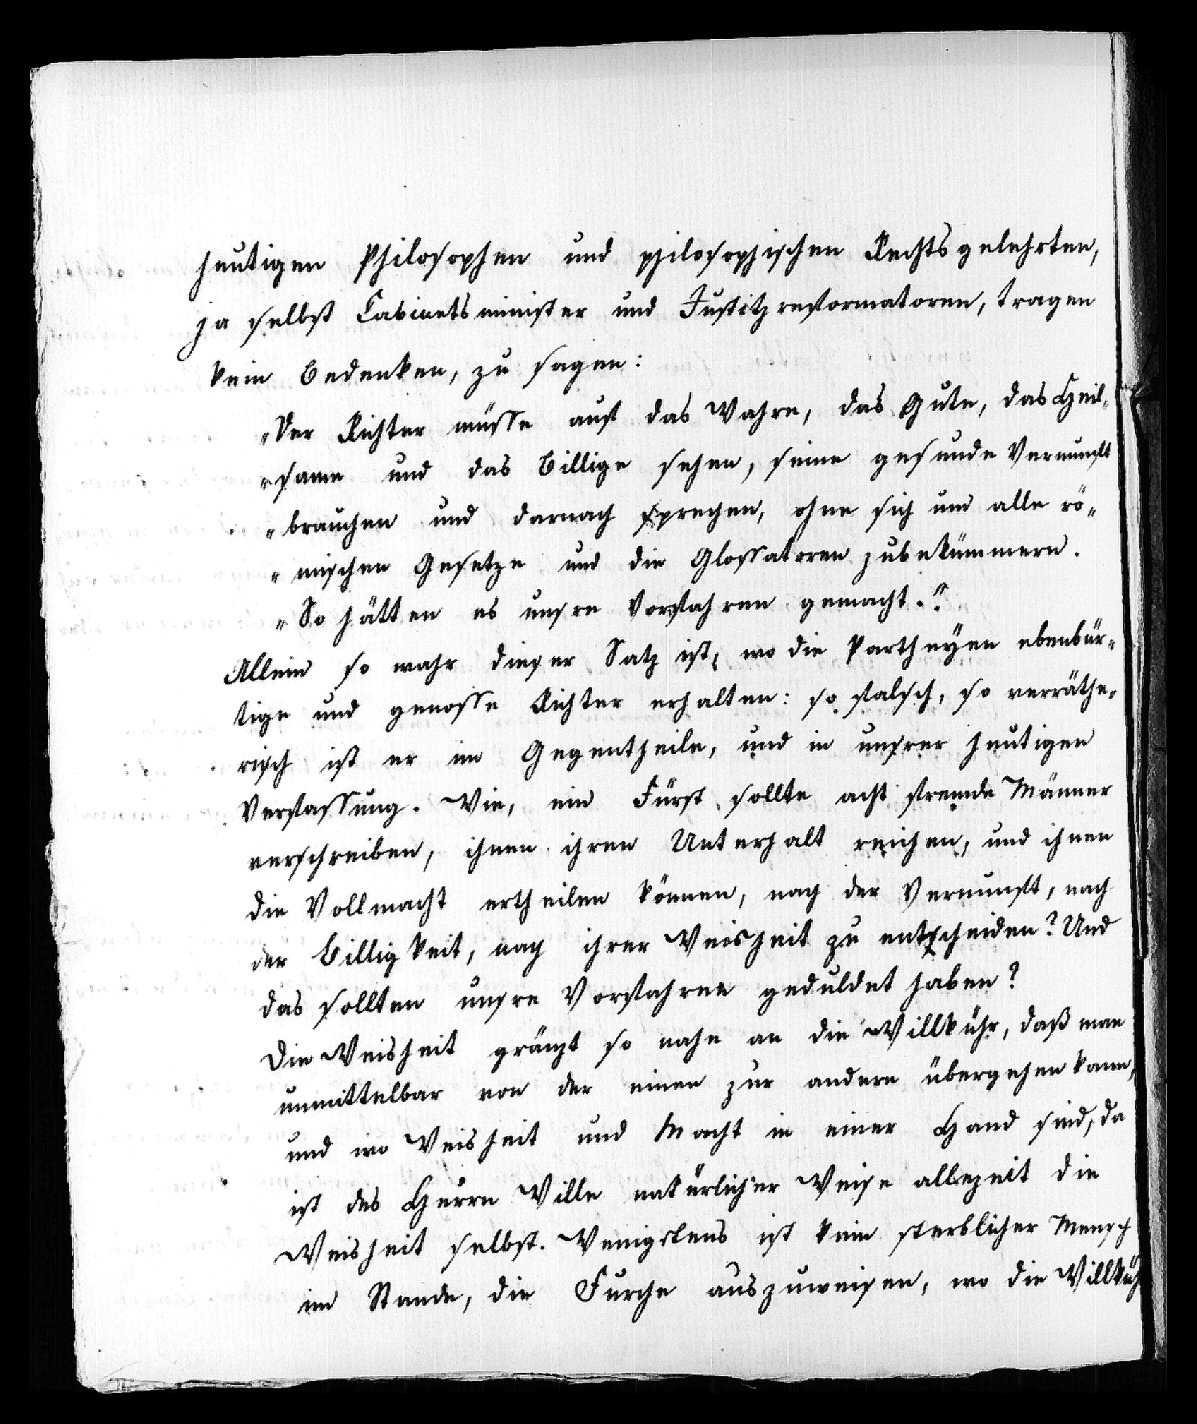 heutigen Philosophen und philosophischen Rechtsgelehrten,
ja selbst Cabinetsminister und Justitzreformatoren, tragen
kein Bedenken, zu sagen:
„Der Richter müsse auf das Wahre, das Gute, das Heil-
„same und das Billige sehen, seine gesunde Vernunft
„brauchen und darnach sprechen, ohne sich um alle rö-
„mischen Gesetze und die Glossatoren zubekümmern.
„So hätten es unsre Vorfahren gemacht.“
Allein so wahr dieser Satz ist, wo die Partheyen ebenbür-
tige und genosse Richter erhalten: so falsch, so verräthe-
risch ist er im Gegentheile, und in unsrer heutigen
Verfassung. Wie, ein Fürst sollte acht fremde Männer
verschreiben, ihnen ihren Unterhalt reichen, und ihnen
die Vollmacht ertheilen können, nach der Vernunft, nach
der Billigkeit, nach ihrer Weisheit zu entscheiden? Und
das sollten unsre Vorfahren geduldet haben?
Die Weisheit gränzt so nahe an die Willkühr, daß man
unmittelbar von der einen zur andern übergehen kann,
und wo Weisheit und Macht in einer Hand sind, da
ist des Herrn Wille natürlicher Weise allezeit die
Weisheit selbst. Wenigstens ist kein sterblicher Mensch
im Stande, die Furche auszuweisen, wo die Willküh